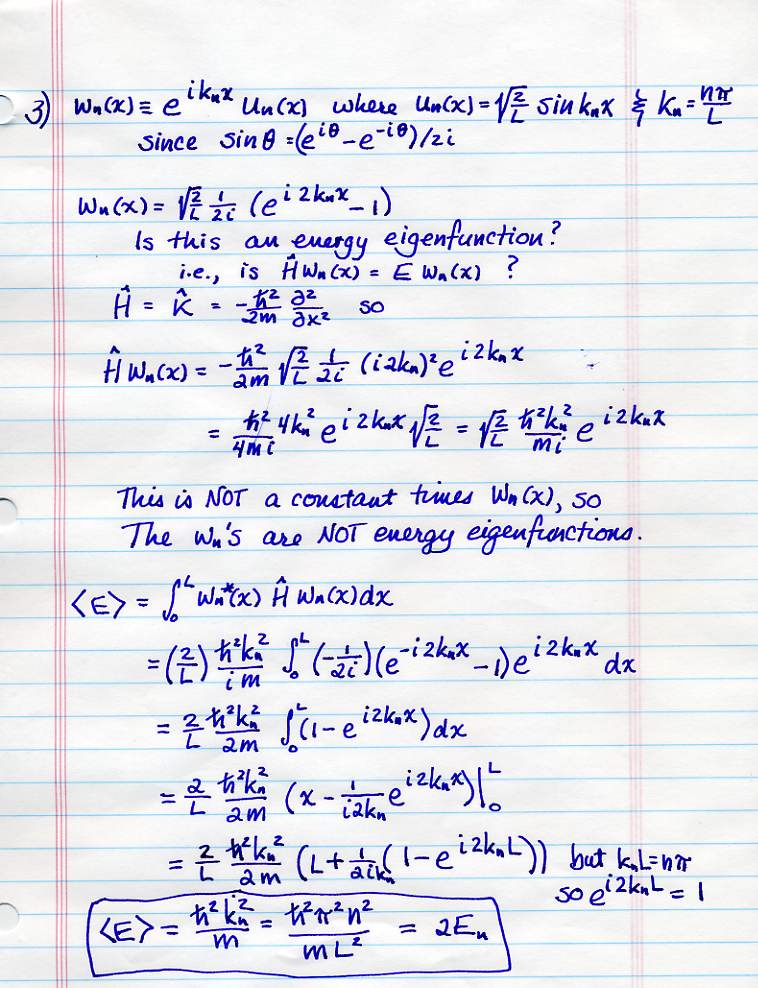 3) wₙ(x) ≡ e^{ikₙx} uₙ(x) where uₙ(x) = √(2/L) sin kₙx & kₙ = nπ/L
since sin θ = (e^{iθ} - e^{-iθ})/2i
wₙ(x) = √(2/L) 1/2i (e^{i2kₙx} - 1)
Is this an energy eigenfunction?
i.e., is Ĥ wₙ(x) = E wₙ(x) ?
Ĥ = K̂ = -ħ²/2m ∂²/∂x² so
Ĥ wₙ(x) = -ħ²/2m √(2/L) 1/2i (i2kₙ)² e^{i2kₙx}
= ħ²/4mi 4kₙ² e^{i2kₙx} √(2/L) = √(2/L) ħ²kₙ²/mi e^{i2kₙx}
This is NOT a constant times wₙ(x), so
The wₙ's are NOT energy eigenfunctions.
⟨E⟩ = ∫₀ᴸ wₙ*(x) Ĥ wₙ(x) dx
= (2/L) ħ²kₙ²/im ∫₀ᴸ (-1/2i)(e^{-i2kₙx} - 1) e^{i2kₙx} dx
= 2/L ħ²kₙ²/2m ∫₀ᴸ (1 - e^{i2kₙx}) dx
= 2/L ħ²kₙ²/2m (x - 1/i2kₙ e^{i2kₙx})|₀ᴸ
= 2/L ħ²kₙ²/2m (L + 1/2ikₙ (1 - e^{i2kₙL})) but kₙL = nπ
so e^{i2kₙL} = 1
⟨E⟩ = ħ²kₙ²/m = ħ²π²n²/mL² = 2Eₙ